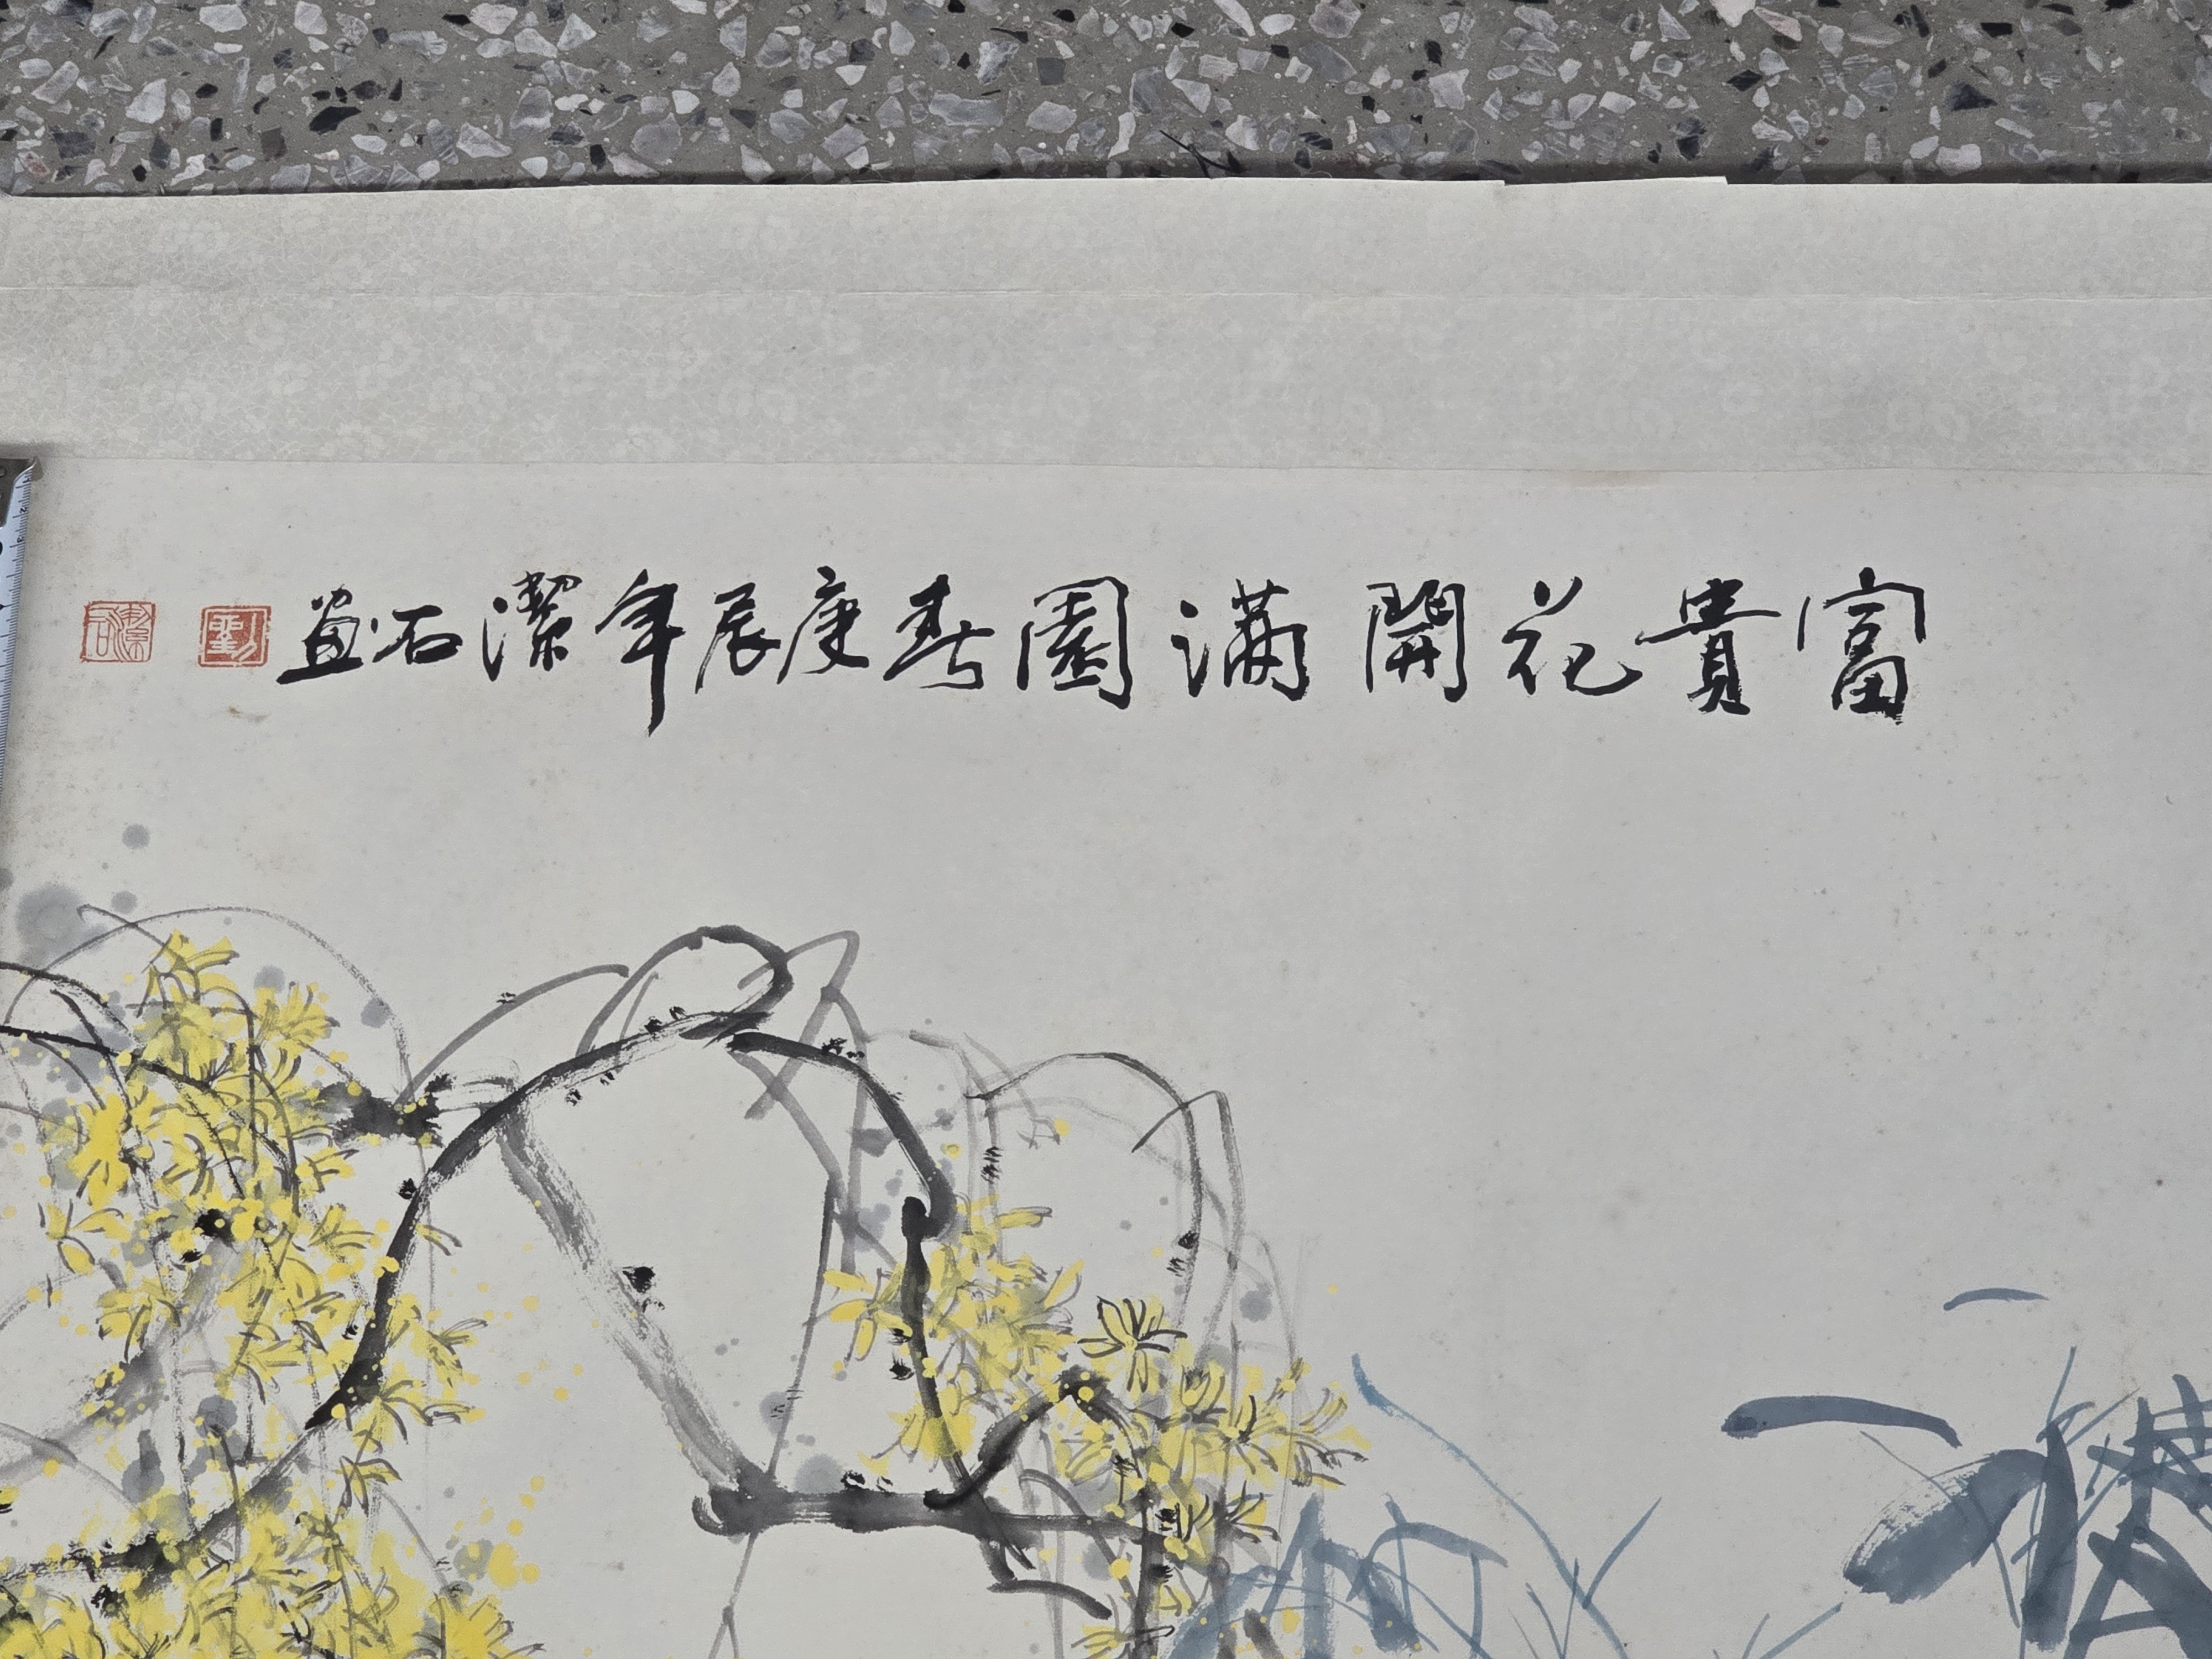 富貴花開滿園春庚辰年潔石畫
劉
潔石